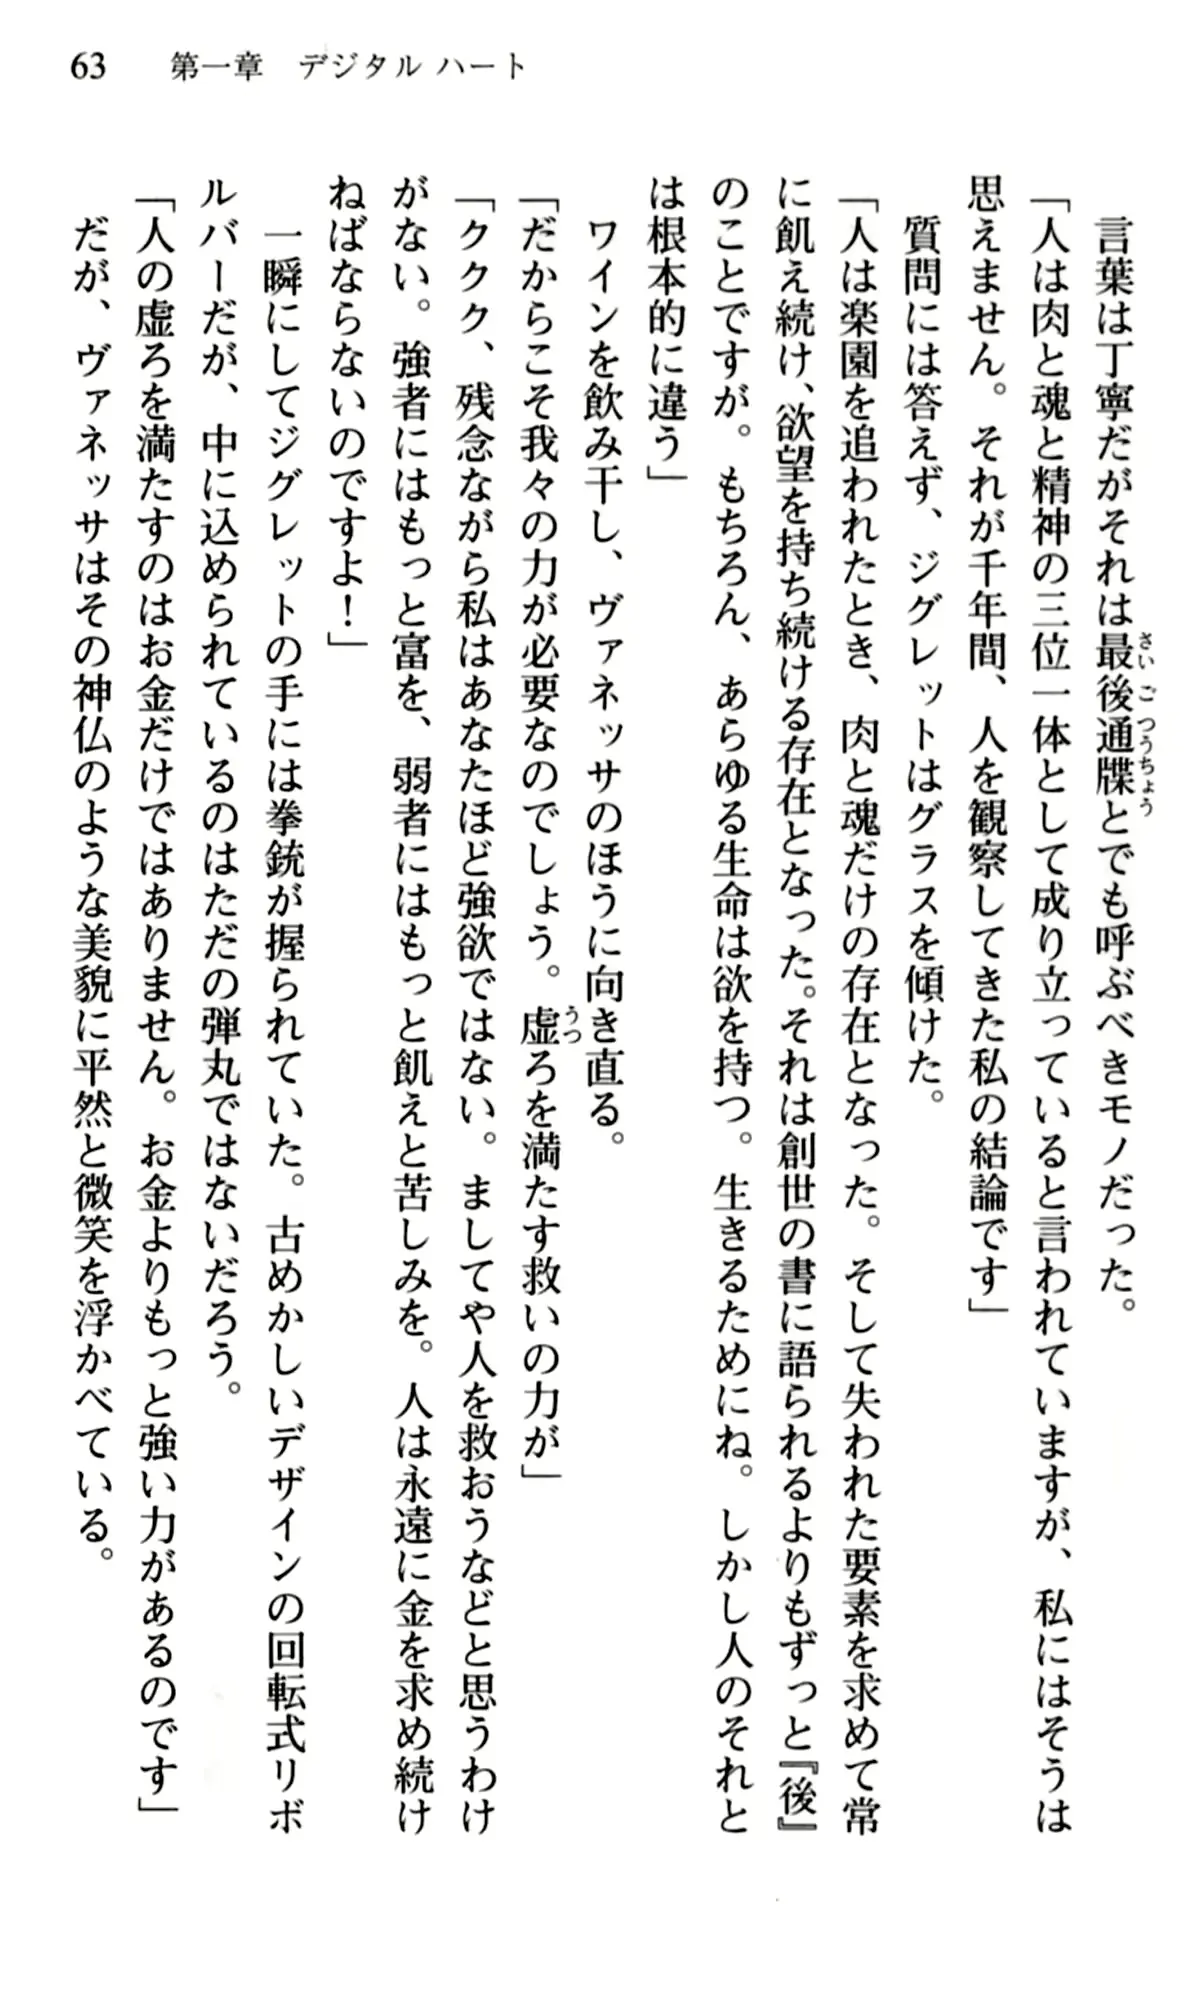 63 第一章 デジタル ハート
言葉は丁寧だがそれは最後通牒とでも呼ぶべきモノだった。
さいごつうちょう
「人は肉と魂と精神の三位一体として成り立っていると言われていますが、私にはそうは
思えません。それが千年間、人を観察してきた私の結論です」
質問には答えず、ジグレットはグラスを傾けた。
「人は楽園を追われたとき、肉と魂だけの存在となった。そして失われた要素を求めて常
に飢え続け、欲望を持ち続ける存在となった。それは創世の書に語られるよりもずっと『後』
のことですが。もちろん、あらゆる生命は欲を持つ。生きるためにね。しかし人のそれと
は根本的に違う」
ワインを飲み干し、ヴァネッサのほうに向き直る。
「だからこそ我々の力が必要なのでしょう。虚ろを満たす救いの力が」
うつ
「ククク、残念ながら私はあなたほど強欲ではない。ましてや人を救おうなどと思うわけ
がない。強者にはもっと富を、弱者にはもっと飢えと苦しみを。人は永遠に金を求め続け
ねばならないのですよ！」
一瞬にしてジグレットの手には拳銃が握られていた。古めかしいデザインの回転式リボ
ルバーだが、中に込められているのはただの弾丸ではないだろう。
「人の虚ろを満たすのはお金だけではありません。お金よりもっと強い力があるのです」
だが、ヴァネッサはその神仏のような美貌に平然と微笑を浮かべている。